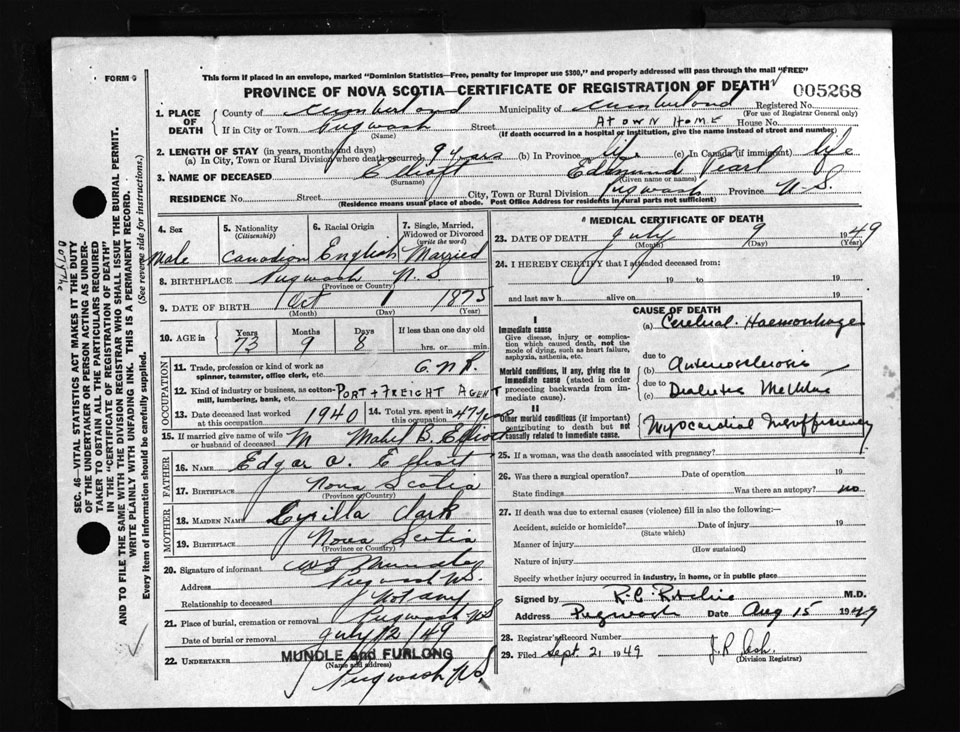 This form if placed in an envelope, marked "Dominion Statistics—Free, penalty for improper use $300," and properly addressed will pass through the mail "FREE"
FORM
PROVINCE OF NOVA SCOTIA—CERTIFICATE OF REGISTRATION OF DEATH
005268
1. PLACE OF DEATH
County of Cumberland Municipality of Cumberland Registered No.
(For use of Registrar General only)
If in City or Town Pugwash Street At own Home House No.
(Name) (If death occurred in a hospital or institution, give the name instead of street and number)
2. LENGTH OF STAY (in years, months and days)
(a) In City, Town or Rural Division where death occurred 9 years (b) In Province life (c) In Canada (if immigrant) life
3. NAME OF DECEASED Elliott Edmund Pearl
(Surname) (Given name or names)
RESIDENCE No. Street City, Town or Rural Division Pugwash Province N.S.
(Residence means usual place of abode. Post Office Address for residents in rural parts not sufficient)
4. Sex
Male
5. Nationality
(Citizenship)
Canadian
6. Racial Origin
English
7. Single, Married, Widowed or Divorced
(write the word)
Married
8. BIRTHPLACE Pugwash N.S
(Province or Country)
9. DATE OF BIRTH Oct 1875
(Month) (Day) (Year)
10. AGE in
Years Months Days If less than one day old
73 9 8 hrs. or min.
OCCUPATION
11. Trade, profession or kind of work as spinner, teamster, office clerk, etc. C.N.R.
12. Kind of industry or business, as cotton-mill, lumbering, bank, etc. Port + Freight Agent
13. Date deceased last worked at this occupation 1940 14. Total yrs. spent in this occupation 47 years
15. If married give name of wife or husband of deceased M Mabel B. Elliott
FATHER
16. Name Edgar A. Elliott
17. Birthplace Nova Scotia
(Province or Country)
MOTHER
18. Maiden Name Cyrilla Clark
19. Birthplace Nova Scotia
(Province or Country)
20. Signature of informant
Address Pugwash N.S.
Relationship to deceased Not any
21. Place of burial, cremation or removal Pugwash NS
Date of burial or removal July 12 /49
22. UNDERTAKER MUNDLE and FURLONG
(Name and address)
Pugwash N.S.
MEDICAL CERTIFICATE OF DEATH
23. DATE OF DEATH July 9 1949
(Month) (Day) (Year)
24. I HEREBY CERTIFY that I attended deceased from:
19 to 19
and last saw h alive on 19
CAUSE OF DEATH
I
Immediate cause
Give disease, injury or complication which caused death, not the mode of dying, such as heart failure, asphyxia, asthenia, etc.
(a) Cerebral Haemorrhage
due to
Morbid conditions, if any, giving rise to immediate cause (stated in order proceeding backwards from immediate cause).
(b) Arteriosclerosis
due to
(c) Diabetes Mellitus
II
Other morbid conditions (if important) contributing to death but not causally related to immediate cause.
Myocardial Insufficiency
25. If a woman, was the death associated with pregnancy?
26. Was there a surgical operation? Date of operation 19
State findings Was there an autopsy? no
27. If death was due to external causes (violence) fill in also the following:—
Accident, suicide or homicide? Date of injury 19
(State which)
Manner of injury
(How sustained)
Nature of injury
Specify whether injury occurred in industry, in home, or in public place
Signed by R.C. Ritchie M.D.
Address Pugwash Date Aug 15 1949
28. Registrar's Record Number
29. Filed Sept. 21 1949
(Division Registrar)
SEC. 46—VITAL STATISTICS ACT MAKES IT THE DUTY
OF THE UNDERTAKER OR PERSON ACTING AS UNDER-
TAKER TO OBTAIN ALL THE PARTICULARS REQUIRED
IN THE "CERTIFICATE OF REGISTRATION OF DEATH"
AND TO FILE THE SAME WITH THE DIVISION REGISTRAR WHO SHALL ISSUE THE BURIAL PERMIT.
WRITE PLAINLY WITH UNFADING INK. THIS IS A PERMANENT RECORD.
Every item of information should be carefully supplied. (See reverse side for instructions.)